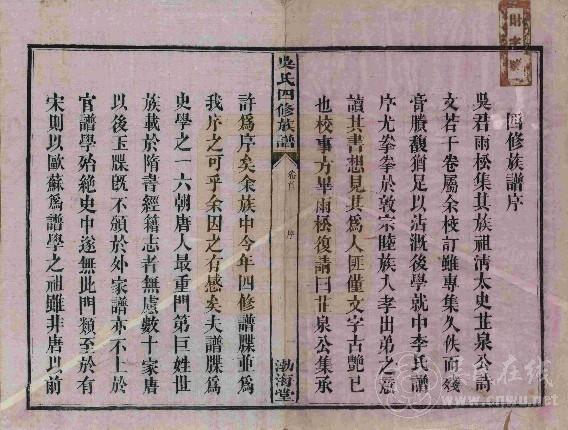 四修族譜序
吳君雨松集其族祖清太史芷泉公詩
文若干卷屬余校訂雖專集久佚而錢
膏賸馥猶足以沾溉後學就中李氏譜
序尤拳拳於敦宗睦族入孝出弟之意
讀其書想見其為人匪僅文字古艷已
也校事方畢雨松復請曰芷泉公集承
吳氏四修族譜
卷首
序
渤海堂
許為序矣余族中今年四修譜牒並為
我序之可乎余因之有感矣夫譜牒為
史學之一六朝唐人最重門第巨姓世
族載於隋書經籍志者無慮數十家唐
以後玉牒旣不頒於外家譜亦不上於
官譜學殆絶史中遂無此門類至於有
宋則以歐蘇為譜學之祖雖非唐以前
www.cnwu.net